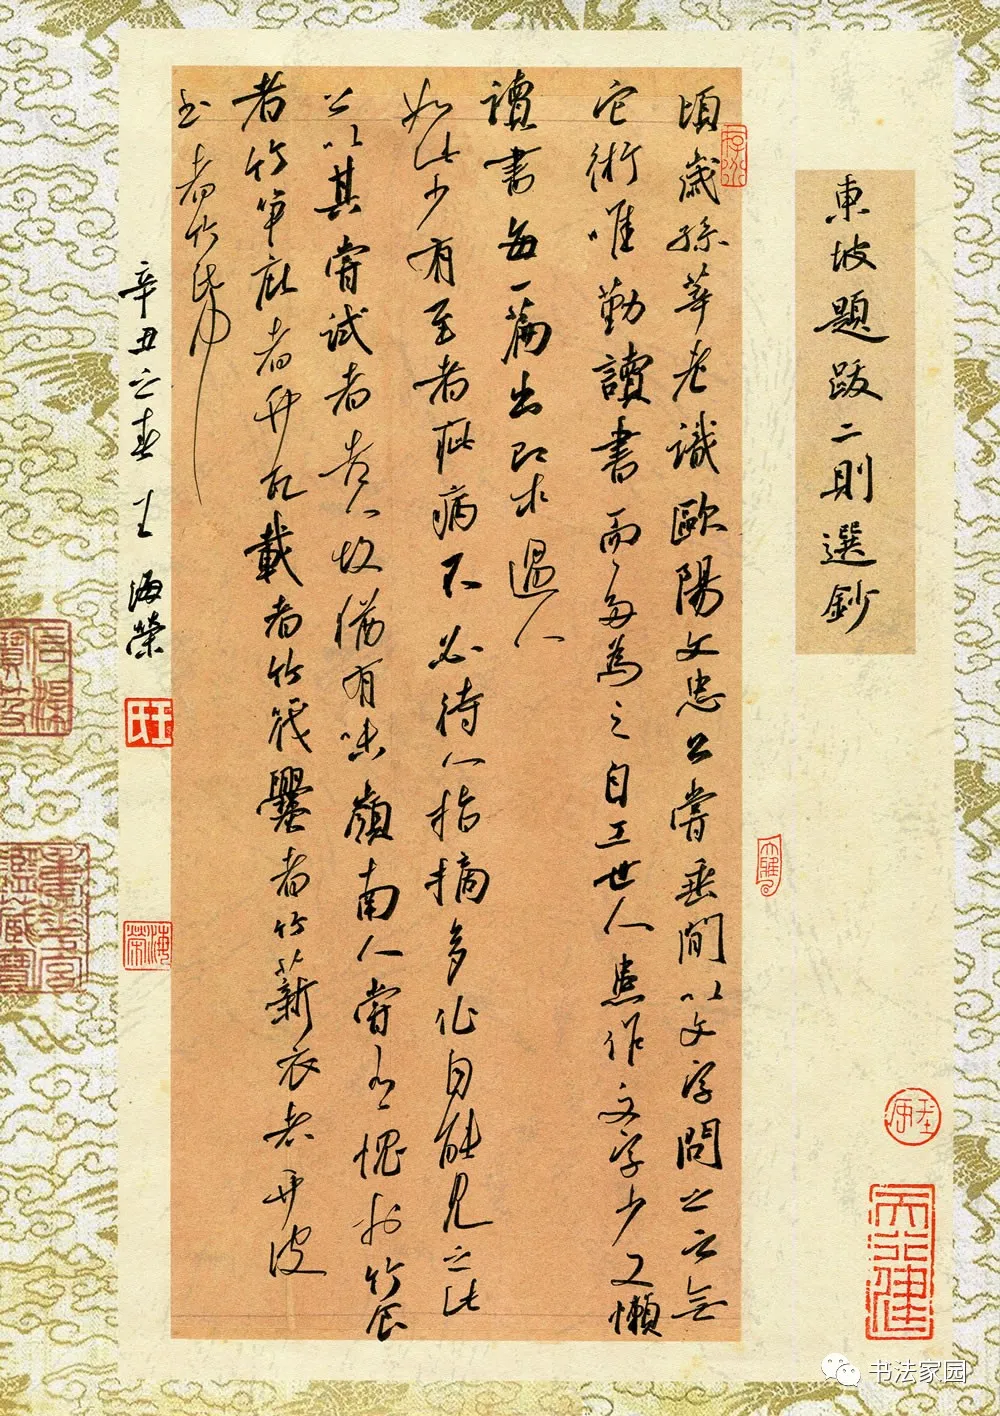 東坡題跋二則選鈔
頃歲孫莘老識歐陽文忠公嘗乘間以文字問之云無
它術唯勤讀書而多為之自工世人患作文字少又懶
讀書每一篇出即求過人
如此少有至者疵病不必待人指摘多作自能見之此
公以其嘗試者告人故猶有味嶺南人當有愧於竹食
者竹筍庇者竹瓦載者竹筏爨者竹薪衣者竹皮
書者竹帋
辛丑之春王海榮
王氏
海榮
天行健
书法家园